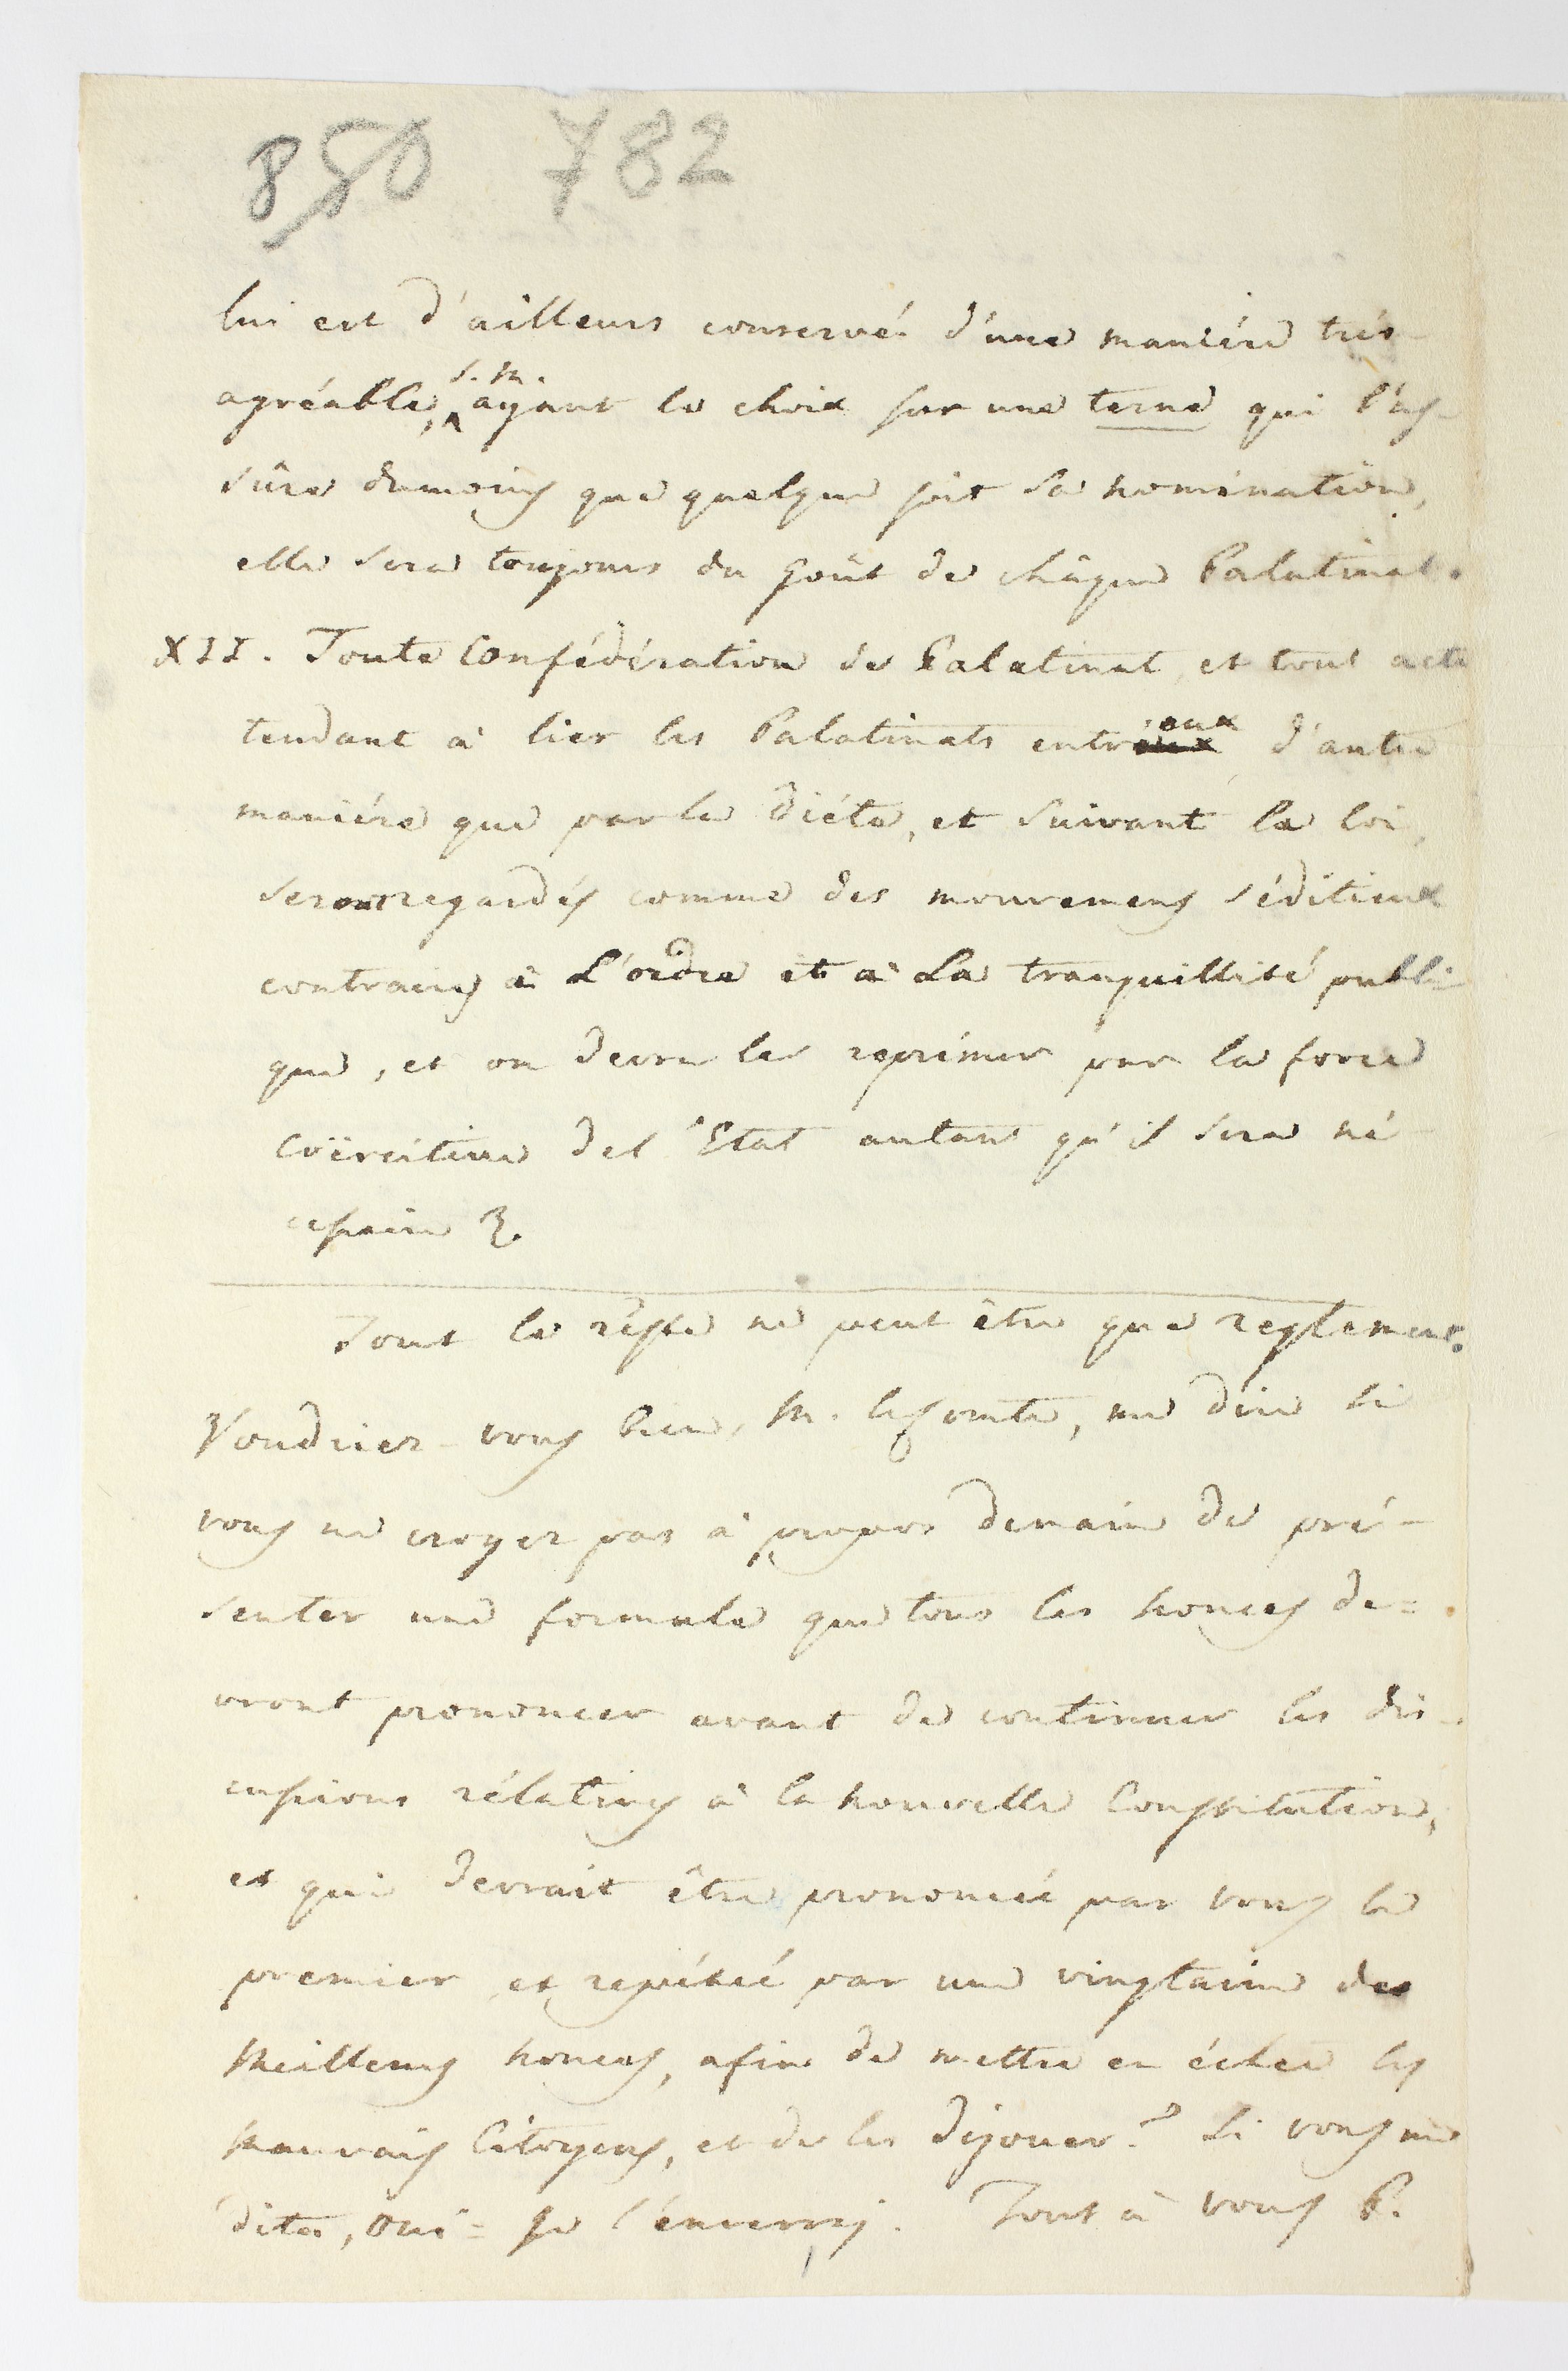 850 782
lui est d'ailleurs conservé d'une maniére trés-
agréable, S. M. ayant le choix sur une terne qui l'as-
sûre dumoins que quelque soit sa nomination,
elle sera toujours du goût de châque Palatinat.
XII. Toute Confédération de Palatinat, et tout acte
tendant à lier les Palatinats entr'eux d'autre
maniére que par la diéte, et suivant la loi,
seront regardés comme des mouvemens séditieux
contraires à L'ordre et à La tranquillité publi-
que, et on devra les reprimer par la force
Coërcitive de l'Etat autant qu'il sera né-
cessaire &.
Tout le reste ne peut être que reglement.
Voudriez-vous bien, M. le Comte, me dire si
vous ne croyez pas à propos demain de pré-
senter une formule que tous les nonces de=
vront prononcer avant de continuer les dis-
cussions rélatives à la nouvelle Constitution,
et qui devrait être prononcée par vous le
premier, et repétée par une vingtaine des
Meilleurs nonces, afin de mettre en échec les
mauvais Citoyens, et de les déjouer? Si vous me
dites, oui= je l'enverrai. Tout à vous P.